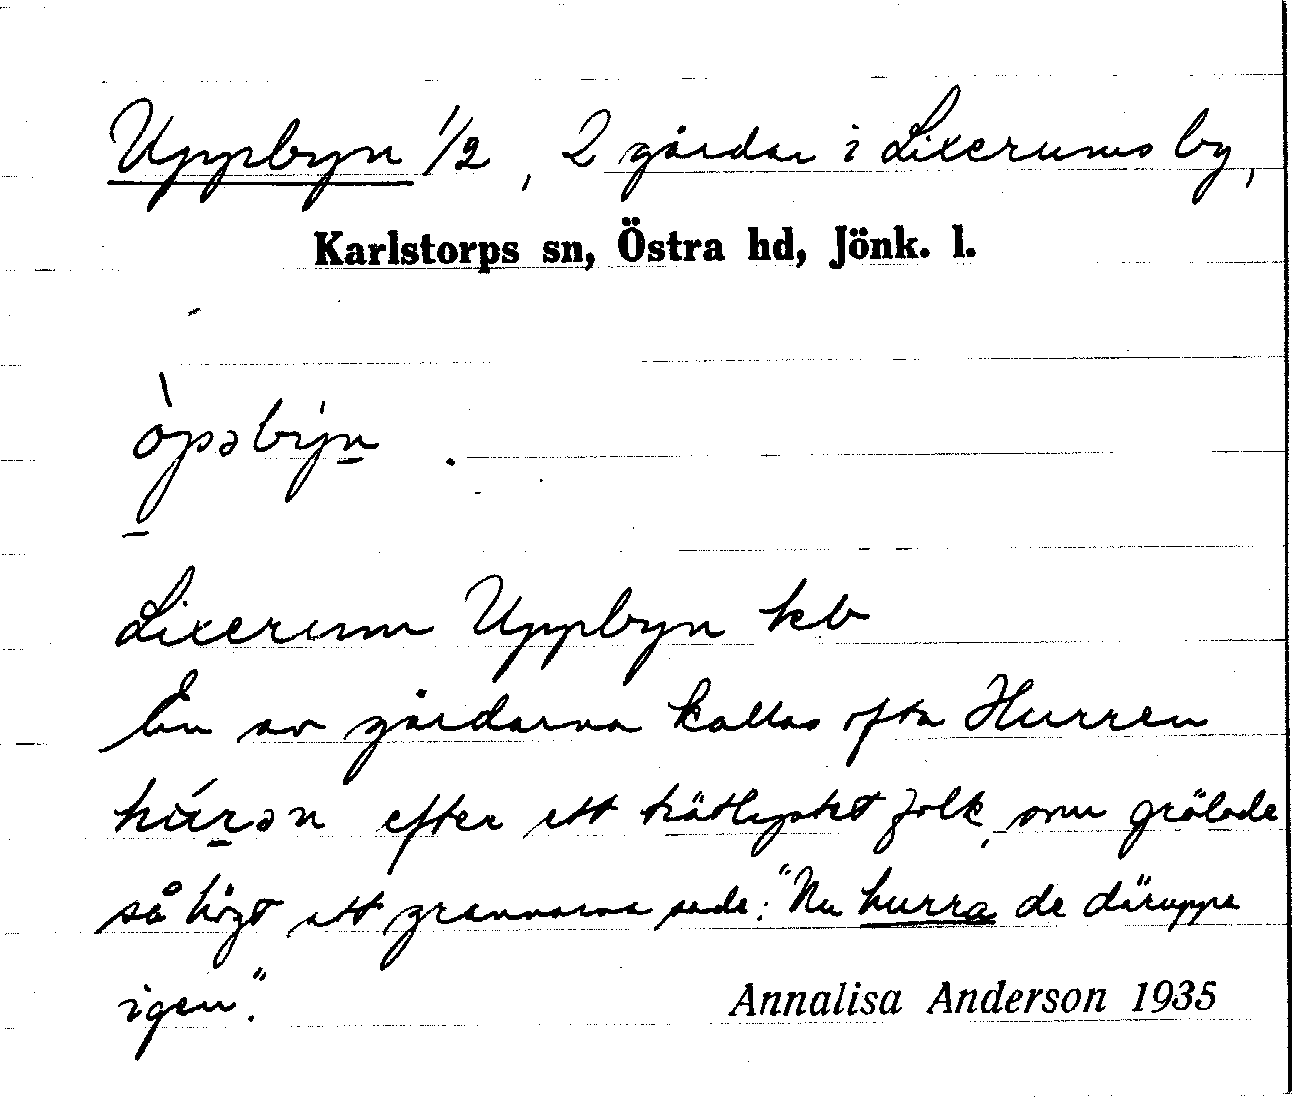 Uppbyn 1/2, 2 gårdar i Lixerums by,
Karlstorps sn, Östra hd, Jönk. l.
òpəbýn.
Lixerum Uppbyn kb
En av gårdarna kallas ofta Hurren
húrən efter ett trätlystet folk, som grälade
så högt att grannarna sade: "Nu hurra de däruppe
igen".
Annalisa Anderson 1935